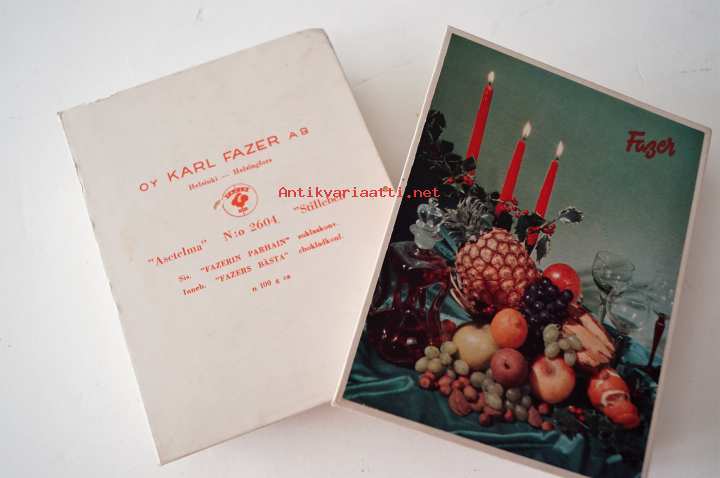 OY KARL FAZER AB
Helsinki — Helsingfors
"Asetelma" N:o 2604. "Stilleben"
Sis. "FAZERIN PARHAIN" suklaakonv.
Inneh. "FAZERS BÄSTA" chokladkonf.
n 100 g ca
Fazer
Antikvariaatti.net